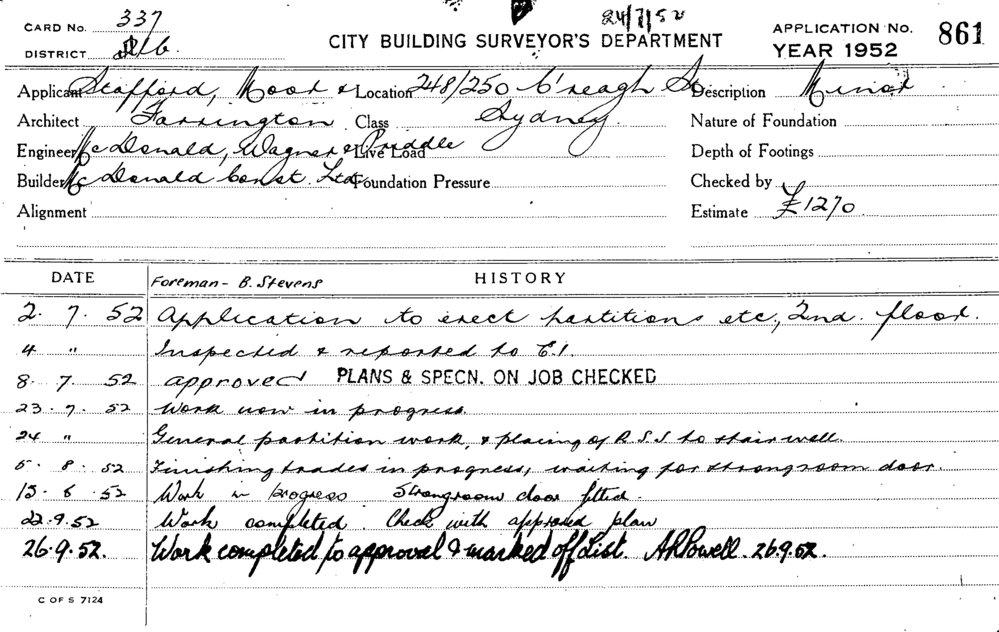 CARD No. 337
24/7/52
APPLICATION No. 861
DISTRICT
CITY BUILDING SURVEYOR'S DEPARTMENT
YEAR 1952
Applicant Stafford, Moor & Location 248/250 C'reagh St Description Minor
Architect Farrington Class Sydney. Nature of Foundation
Engineer McDonald, Wagner & Priddle Live Load Depth of Footings
Builder McDonald Const. Ltd. Foundation Pressure Checked by
Alignment Estimate £1270
DATE Foreman - B. Stevens HISTORY
2. 7. 52 Application to erect partitions etc, 2nd. floor.
4 " Inspected & reported to C.I.
8. 7. 52 approved PLANS & SPECN. ON JOB CHECKED
23. 7. 52 Work now in progress.
24 " General partition work, & placing of R.S.J. to stair well.
5. 8. 52 Finishing trades in progress, waiting for strongroom door.
15. 8. 52 Work in progress Strongroom door fitted.
22.9.52 Work completed. Check with approved plan
26.9.52. Work completed to approval & marked off List. A R Powell. 26.9.52.
C OF S 7124